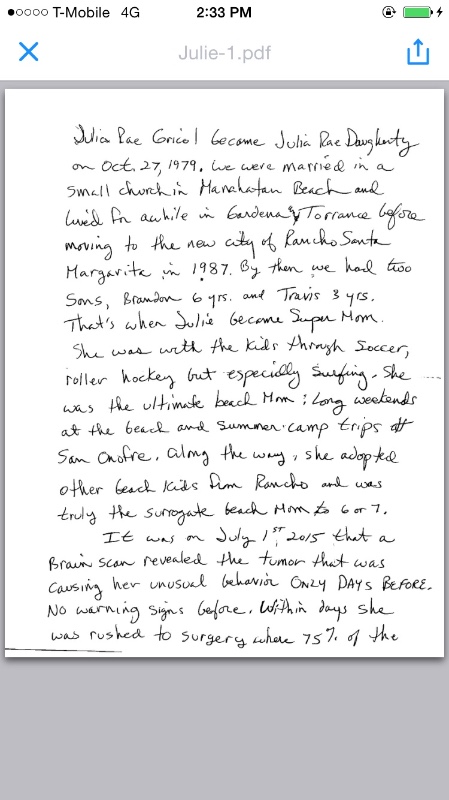 T-Mobile 4G 2:33 PM
Julie-1.pdf
Julia Rae Gricol become Julia Rae Daugherty
on Oct. 27, 1979. We were married in a
small church in Manahatan Beach and
lived for awhile in Gardena & Torrance before
moving to the new city of Rancho Santa
Margarita in 1987. By then we had two
Sons, Brandon 6 yrs. and Travis 3 yrs.
That's when Julie become Super Mom.
She was with the kids through Soccer,
roller hockey but especially surfing. She
was the ultimate beach Mom; Long weekends
at the beach and summer camp trips at
San Onofre. Along the way, she adopted
other beach kids from Rancho and was
truly the surrogate beach Mom to 6 or 7.
It was on July 1ST, 2015 that a
Brain scan revealed the tumor that was
causing her unusual behavior ONLY DAYS BEFORE.
No warning signs before. Within days she
was rushed to surgery where 75% of the